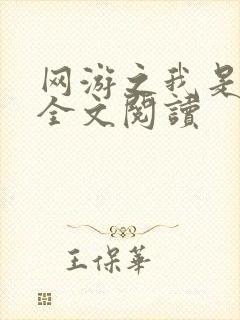 网游之我是
全文閱讀
王保華